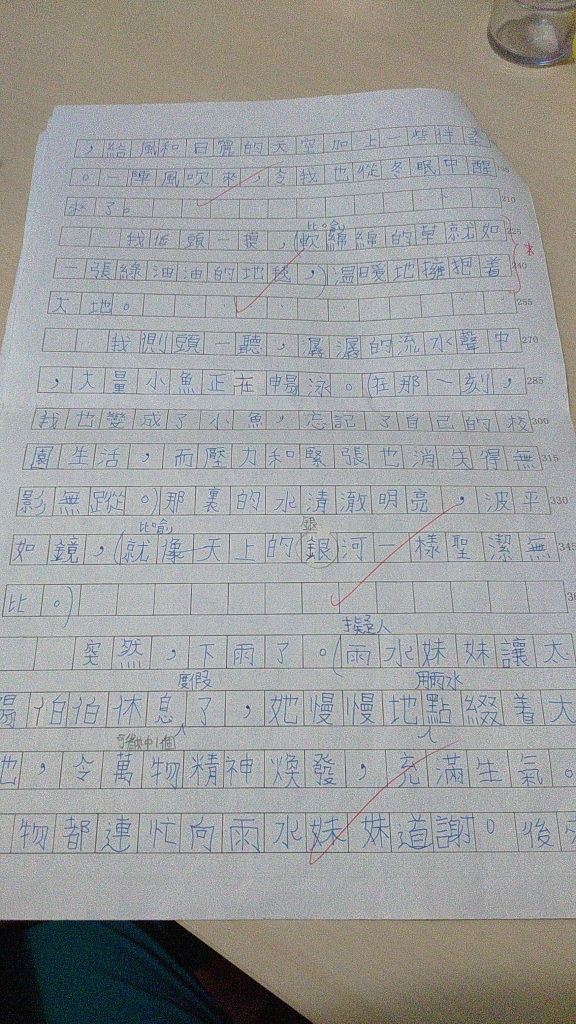 ，給風和日麗的天空加上一些伴奏
。一陣風吹來，令我也從冬眠中醒
來了。
210
比喻
我低頭一望，(軟綿綿的草就如
225
一張綠油油的地毯，)溫暖地擁抱着
240
大地。
255
我側頭一聽，潺潺的流水聲中
270
，大量小魚正在暢泳。(在那一刻，
285
我也變成了小魚，忘記了自己的校
300
園生活，而壓力和緊張也消失得無
315
影無蹤。)那裏的水清澈明亮，波平
330
比喻
銀
如鏡，(就像天上的銀河一樣聖潔無
345
比。)
擬人
突然，下雨了。(雨水妹妹讓太
度假
用雨水
陽伯伯休息了，她慢慢地點綴着大
地，令萬物精神煥發，充滿生氣。
物都連忙向雨水妹妹道謝。後來